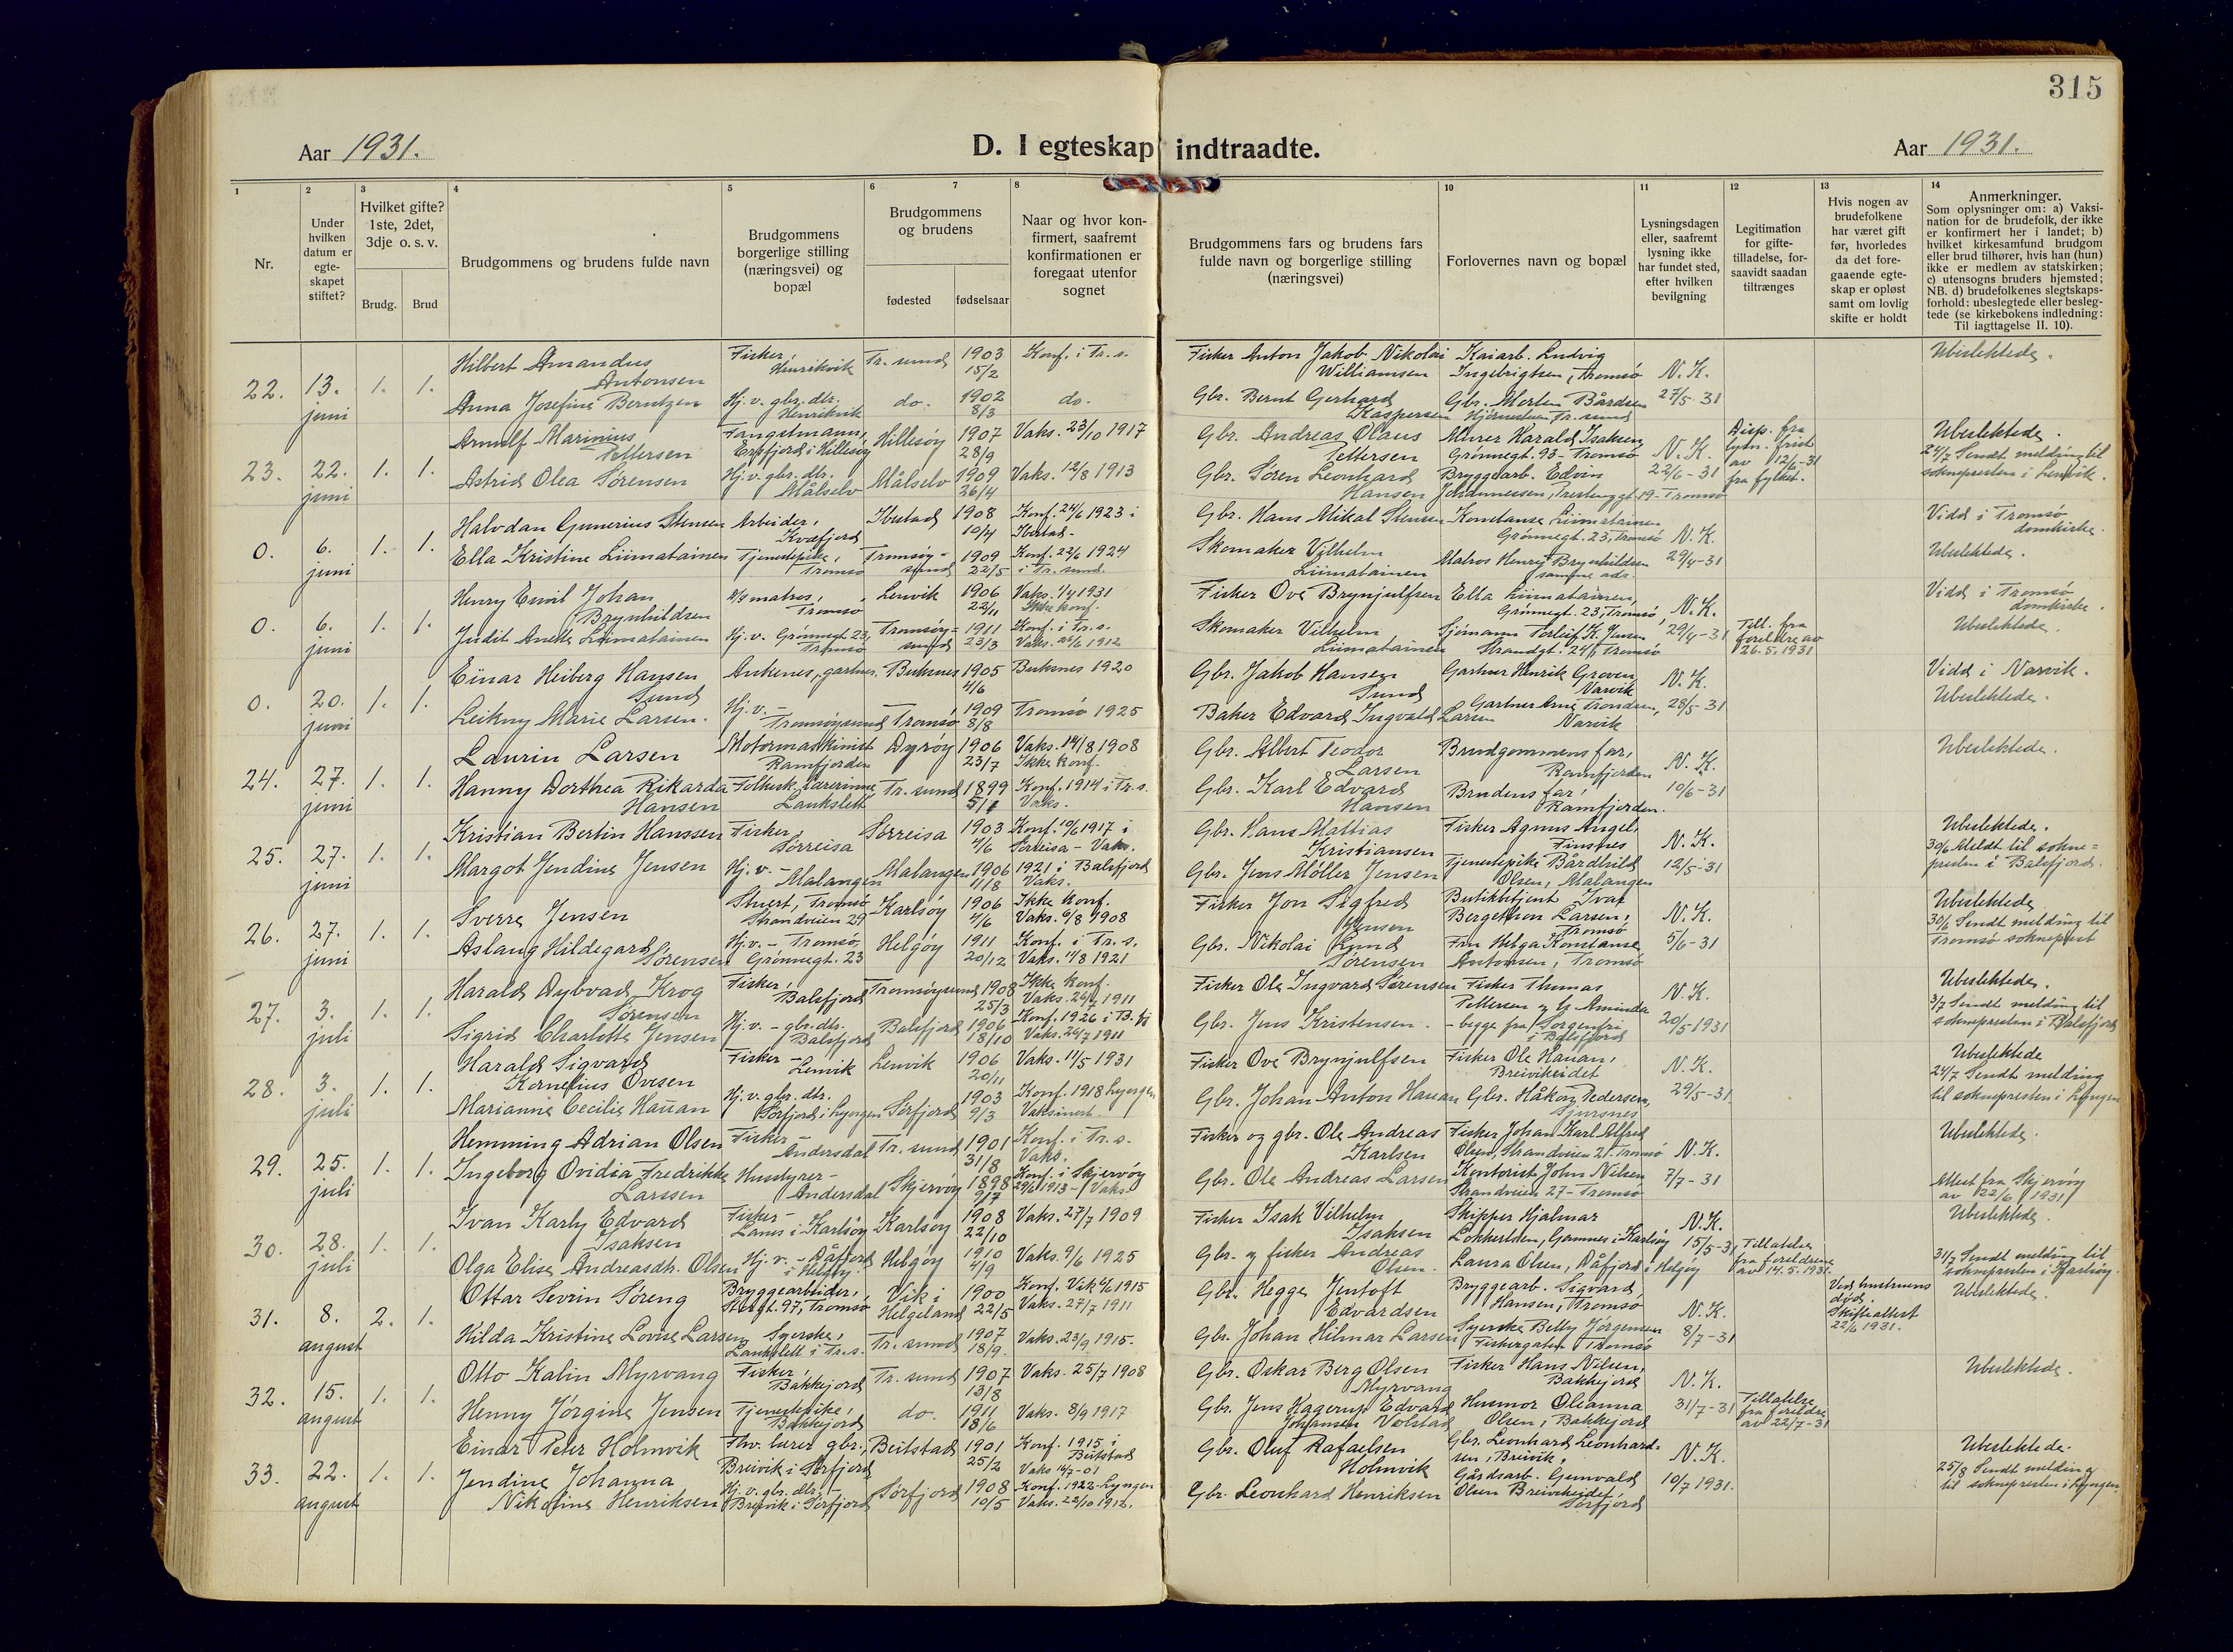 315
Aar 1931.
D. I egteskap indtraadte.
Aar 1931.
1 2 3 4 5 6 7 8 10 11 12 13 14
Nr.
Under hvilken datum er egte-skapet stiftet?
Hvilket gifte? 1ste, 2det, 3dje o. s. v.
Brudg.
Brud
Brudgommens og brudens fulde navn
Brudgommens borgerlige stilling (næringsvei) og bopæl
Brudgommens og brudens
fødested
fødselsaar
Naar og hvor kon-firmert, saafremt konfirmationen er foregaat utenfor sognet
Brudgommens fars og brudens fars fulde navn og borgerlige stilling (næringsvei)
Forlovernes navn og bopæl
Lysningsdagen eller, saafremt lysning ikke har fundet sted, efter hvilken bevilgning
Legitimation for gifte-tilladelse, for-saavidt saadan tiltrænges
Hvis nogen av brudefolkene har været gift før, hvorledes da det fore-gaaende egte-skap er opløst samt om lovlig skifte er holdt
Anmerkninger.
Som oplysninger om: a) Vaksi-nation for de brudefolk, der ikke er konfirmert her i landet; b) hvilket kirkesamfund brudgom eller brud tilhører, hvis han (hun) ikke er medlem av statskirken; c) utensogns bruders hjemsted; NB. d) brudefolkenes slegtskaps-forhold: ubeslegtede eller besleg-tede (se kirkebokens indledning: Til iagttagelse II. 10).
22. 13. juni 1. 1.
Hilbert Amandus Antonsen
Fisker, Henrikvik
Tr. sund 1903 15/2
Konf. i Tr. s.
Fisker Anton Jakob Nikolai Williamsen
Kaiarb. Ludvig Ingebrigtsen, Tromsø
N. K. 27/5-31
Ubeslektede.
Anna Josefine Berntzen
Hj. v. gbr. dtr. Henrikvik
do. 1902 8/3
do.
Gbr. Bernt Gerhard Kaspersen
Gbr. Merten Bårdsen Tr. sund
23. 22. juni 1. 1.
Arnulf Marinius Pettersen
Fangstmann, Erfjord i Hillesøy
Hillesøy 1907 28/9
Vaks. 23/10 1917
Gbr. Andreas Olaus Pettersen
Murer Harald Isaksen Grønnegt. 93 - Tromsø
N. K. 22/6-31
Disp. fra lysn. frist av 12/6-31 fra fylket.
Ubeslektede.
24/7 Sendt melding til soknepresten i Lenvik.
Astrid Olea Sørensen
Hj. v. gbr. dtr. Målselv
Målselv 1909 26/4
Vaks. 12/8 1913
Gbr. Søren Leonhard Hansen
Bryggearb. Edvin Johannessen, 19 - Tromsø
0. 6. juni 1. 1.
Halvdan Gunerius Stensen
Arbeider, Kvæfjord
Ibestad 1908 10/4
Konf. 24/6 1923 i Ibestad -
Gbr. Hans Mikal Stensen
Konstanse Liimatainen Grønnegt. 23, Tromsø
N. K. 29/4-31
Vidd i Tromsø domkirke.
Ubeslektede.
Ella Kristine Liimatainen
Tjenestepike, Tromsø
Tromsøy-sund 1909 22/5
Konf. 22/6 1924 i Tr. sund.
Skomaker Vilhelm Liimatainen
Matros Henry Brynhildsen samme adr.
0. 6. juni 1. 1.
Henry Emil Johan Brynhildsen
D/s matros, Tromsø
Lenvik 1906 22/11
Vaks. 1931 Ikke konf.
Fisker Ove Brynjulfsen
Ella Liimatainen, Grønnegt. 23, Tromsø,
N. K. 29/4-31
Till. fra foreldre av 26.5.1931
Vidd i Tromsø domkirke.
Ubeslektede.
Judit Anette Liimatainen
Hj. v. Grønnegt 23, Tromsø
Tromsøy-sund 1911 23/3
Konf. i Tr. s. Vaks. 26/6 1912
Skomaker Vilhelm Liimatainen
Sjømann Torleif K. Jensen Strandgt. 24 Tromsø
0. 20. juni 1. 1.
Einar Heiberg Hansen Sund
Ankenes, gartner.
Buksnes 1905 4/6
Buksnes 1920
Gbr. Jakob Hansen Sund
Gartner Henrik Greven, Narvik
N. K. 28/5-31
Vidd i Narvik.
Ubeslektede.
Leikny Marie Larsen.
Hj. v. - Tromsøysund
Tromsø 1909 8/8
Tromsø 1925
Baker Edvard Ingvald Larsen
Gartner Arne Trondsen, Narvik
24. 27. juni 1. 1.
Laurin Larsen
Motormaskinist Ramfjorden
Dyrøy 1906 23/7
Vaks. 14/8 1908 Ikke konf.
Gbr. Albert Teodor Larsen
Brudgommens far, Ramfjorden
N. K. 10/6-31
Ubeslektede.
Hanny Dorthea Rikarda Hansen
Folkesk. lærerinne, Lankslett
Tr. sund 1899
Konf. 1914 i Tr. s. Vaks.
Gbr. Karl Edvard Hansen
Brudens far, Ramfjorden.
25. 27. juni 1. 1.
Kristian Bertin Hanssen
Fisker, Sørreisa
Sørreisa 1903 4/6
Konf. 10/6 1917 i Sørreisa - Vaks.
Gbr. Hans Mattias Kristiansen
Fisker Agnus Angel, Finsnes
N. K. 12/5-31
Ubeslektede.
30/6 Meldt til sokne=presten i Balsfjord.
Margot Jendine Jensen
Hj. v. - Malangen
Malangen 1906 11/8
1921 i Balsfjord Vaks.
Gbr. Jens Møller Jensen
Tjenestepike Bårdhild Olsen, Malangen
26. 27. juni 1. 1.
Sverre Jensen
Stuert, Tromsø Strandveien 29
Karlsøy 1906 4/6
Ikke konf. Vaks. 6/8 1908
Fisker Jon Sigfred Jensen
Butikbetjent Ivar Bergethon Larsen, Tromsø
N. K. 5/6-31
Ubeslektede.
30/6 Sendt melding til Tromsø sokneprest
Aslaug Hildegard Sørensen
Hj. v. - Tromsø, Grønnegt. 23
Helgøy 1911 20/12
Konf. i Tr. s. Vaks. 11/8 1921
Gbr. Nikolai Lund Sørensen
Fru Helga Konstanse Antonsen, Tromsø
27. 3. juli 1. 1.
Harald Dybvad Krog Sørensen
Fisker, Balsfjord
Tromsøysund 1908 25/3
Ikke konf. Vaks. 24/7 1911
Fisker Ole Ingvard Sørensen
Fisker Thomas Pettersen og Aminda - begge fra Sorgenfri i Balsfjord
N. K. 20/5 1931
Ubeslektede.
3/7 Sendt melding til soknepresten i Balsfjord
Sigrid Charlotte Jensen
Hj. v. - gbr. dtr. Balsfjord
Balsfjord 1906 18/10
Konf. 1926 i B. fj Vaks. 24/7 1911
Gbr. Jens Kristensen.
28. 3. juli 1. 1.
Harald Sigvard Kornelius Ovesen
Fisker - Lenvik
Lenvik 1906 20/11
Vaks. 11/5 1931
Fisker Ove Brynjulfsen
Fisker Ole Hauan, Breivikeidet
N. K. 29/5-31
Ubeslektede
24/7 Sendt melding til soknepresten i Lyngen
Marianne Cecilie Hauan
Hj. v. gbr. dtr. Sørfjord i Lyngen
Sørfjord 1903 9/3
Konf. 1918 Lyngen Vaksinert.
Gbr. Johan Anton Hauan
Gbr. Håkon Pedersen, Sjursnes
29. 25. juli 1. 1.
Hemming Adrian Olsen
Fisker - Andersdal
Tr. sund 1901 31/8
Konf. i Tr. s. Vaks.
Fisker og gbr. Ole Andreas Karlsen
Fisker Johan Karl Alfred Olsen, Strandveien 21. Tromsø
N. K. 7/7-31
Ubeslektede.
Ingeborg Ovidia Fredrikke Larssen
Husstyrer - Andersdal
Skjervøy 1898 9/7
Konf. i Skjervøy 29/6 1913 - Vaks.
Gbr. Ole Andreas Larsen
Kontorist John Nilsen Strandveien 27 - Tromsø
Attest fra Skjervøy av 22/6 1931
30. 28. juli 1. 1.
Ivan Karly Edvard Isaksen
Fisker - Lanes i Karlsøy
Karlsøy 1908 22/10
Vaks. 27/7 1909
Fisker Isak Vilhelm Isaksen
Skipper Hjalmar Lokkertsen, Gamnes i Karlsøy
N. K. 15/5-31
Tillatelse fra foreldrene av 14.5.1931.
Ubeslektede.
31/7 Sendt melding til soknepresten i Karlsøy.
Olga Elise Andreasdtr. Olsen
Hj. v. - Dåfjord i Helgøy.
Helgøy 1910 4/9
Vaks. 9/6 1925
Gbr. og fisker Andreas Olsen.
Laura Olsen, Dåfjord i Helgøy
31. 8. august 2. 1.
Ottar Sevrin Søreng
Bryggearbeider, Storgt. 97, Tromsø
Vik i Helgeland 1900 22/5
Konf. Vik 1915 Vaks. 27/7 1911
Gbr. Hegge Jentoft Edvardsen
Bryggearb. Sigvard, Hansen, Tromsø
N. K. 8/7-31
Ved hustruens død. Skifteattest 22/6 1931.
Ubeslektede.
Hilda Kristine Lovise Larsen
Syerske, Lankslett i Tr. s.
Tr. sund 1907 18/9.
Vaks. 23/9 1915.
Gbr. Johan Hilmar Larsen
Syerske Betty Jørgensen Fiskergaten Tromsø
32. 15. august 1. 1.
Otto Kalin Myrvang
Fisker, Bakkejord
Tr. sund 1907 13/8
Vaks. 25/7 1908
Gbr. Oskar Berg Olsen Myrvang
Fisker Hans Nilsen, Bakkejord
N. K. 31/7-31
Tillatelse fra foreldre av 22/7-31
Ubeslektede.
Henny Jørgine Jensen
Tjenestepike, Bakkejord
do. 1911 18/6
Vaks. 8/9 1917
Gbr. Jens Kagerup Edvard Johansen Volstad
Husmor Oleanna Olsen, Bakkejord
33. 22. august 1. 1.
Einar Peter Holmvik
Fhv. lærer gbr., Breivik i Sørfjord
Beitstad 1901 25/2
Konf. 1915 i Beitstad Vaks 16/7-01
Gbr. Oluf Rafaelsen Holmvik
Gbr. Leonhard Leonhard-sen, Breivik,
N. K. 10/7 1931.
Ubeslektede.
25/8 Sendt melding til soknepresten i Lyngen.
Jendine Johanna Nikoline Henriksen
Hj. v. gbr. dtr. - Breivik i Sørfjord
Sørfjord 1908 10/5
Konf. 1922 - Lyngen Vaks. 22/10 1912.
Gbr. Leonhard Henriksen
Gårdsarb. Gunvald Olsen Breivikeidet, Sørfjord